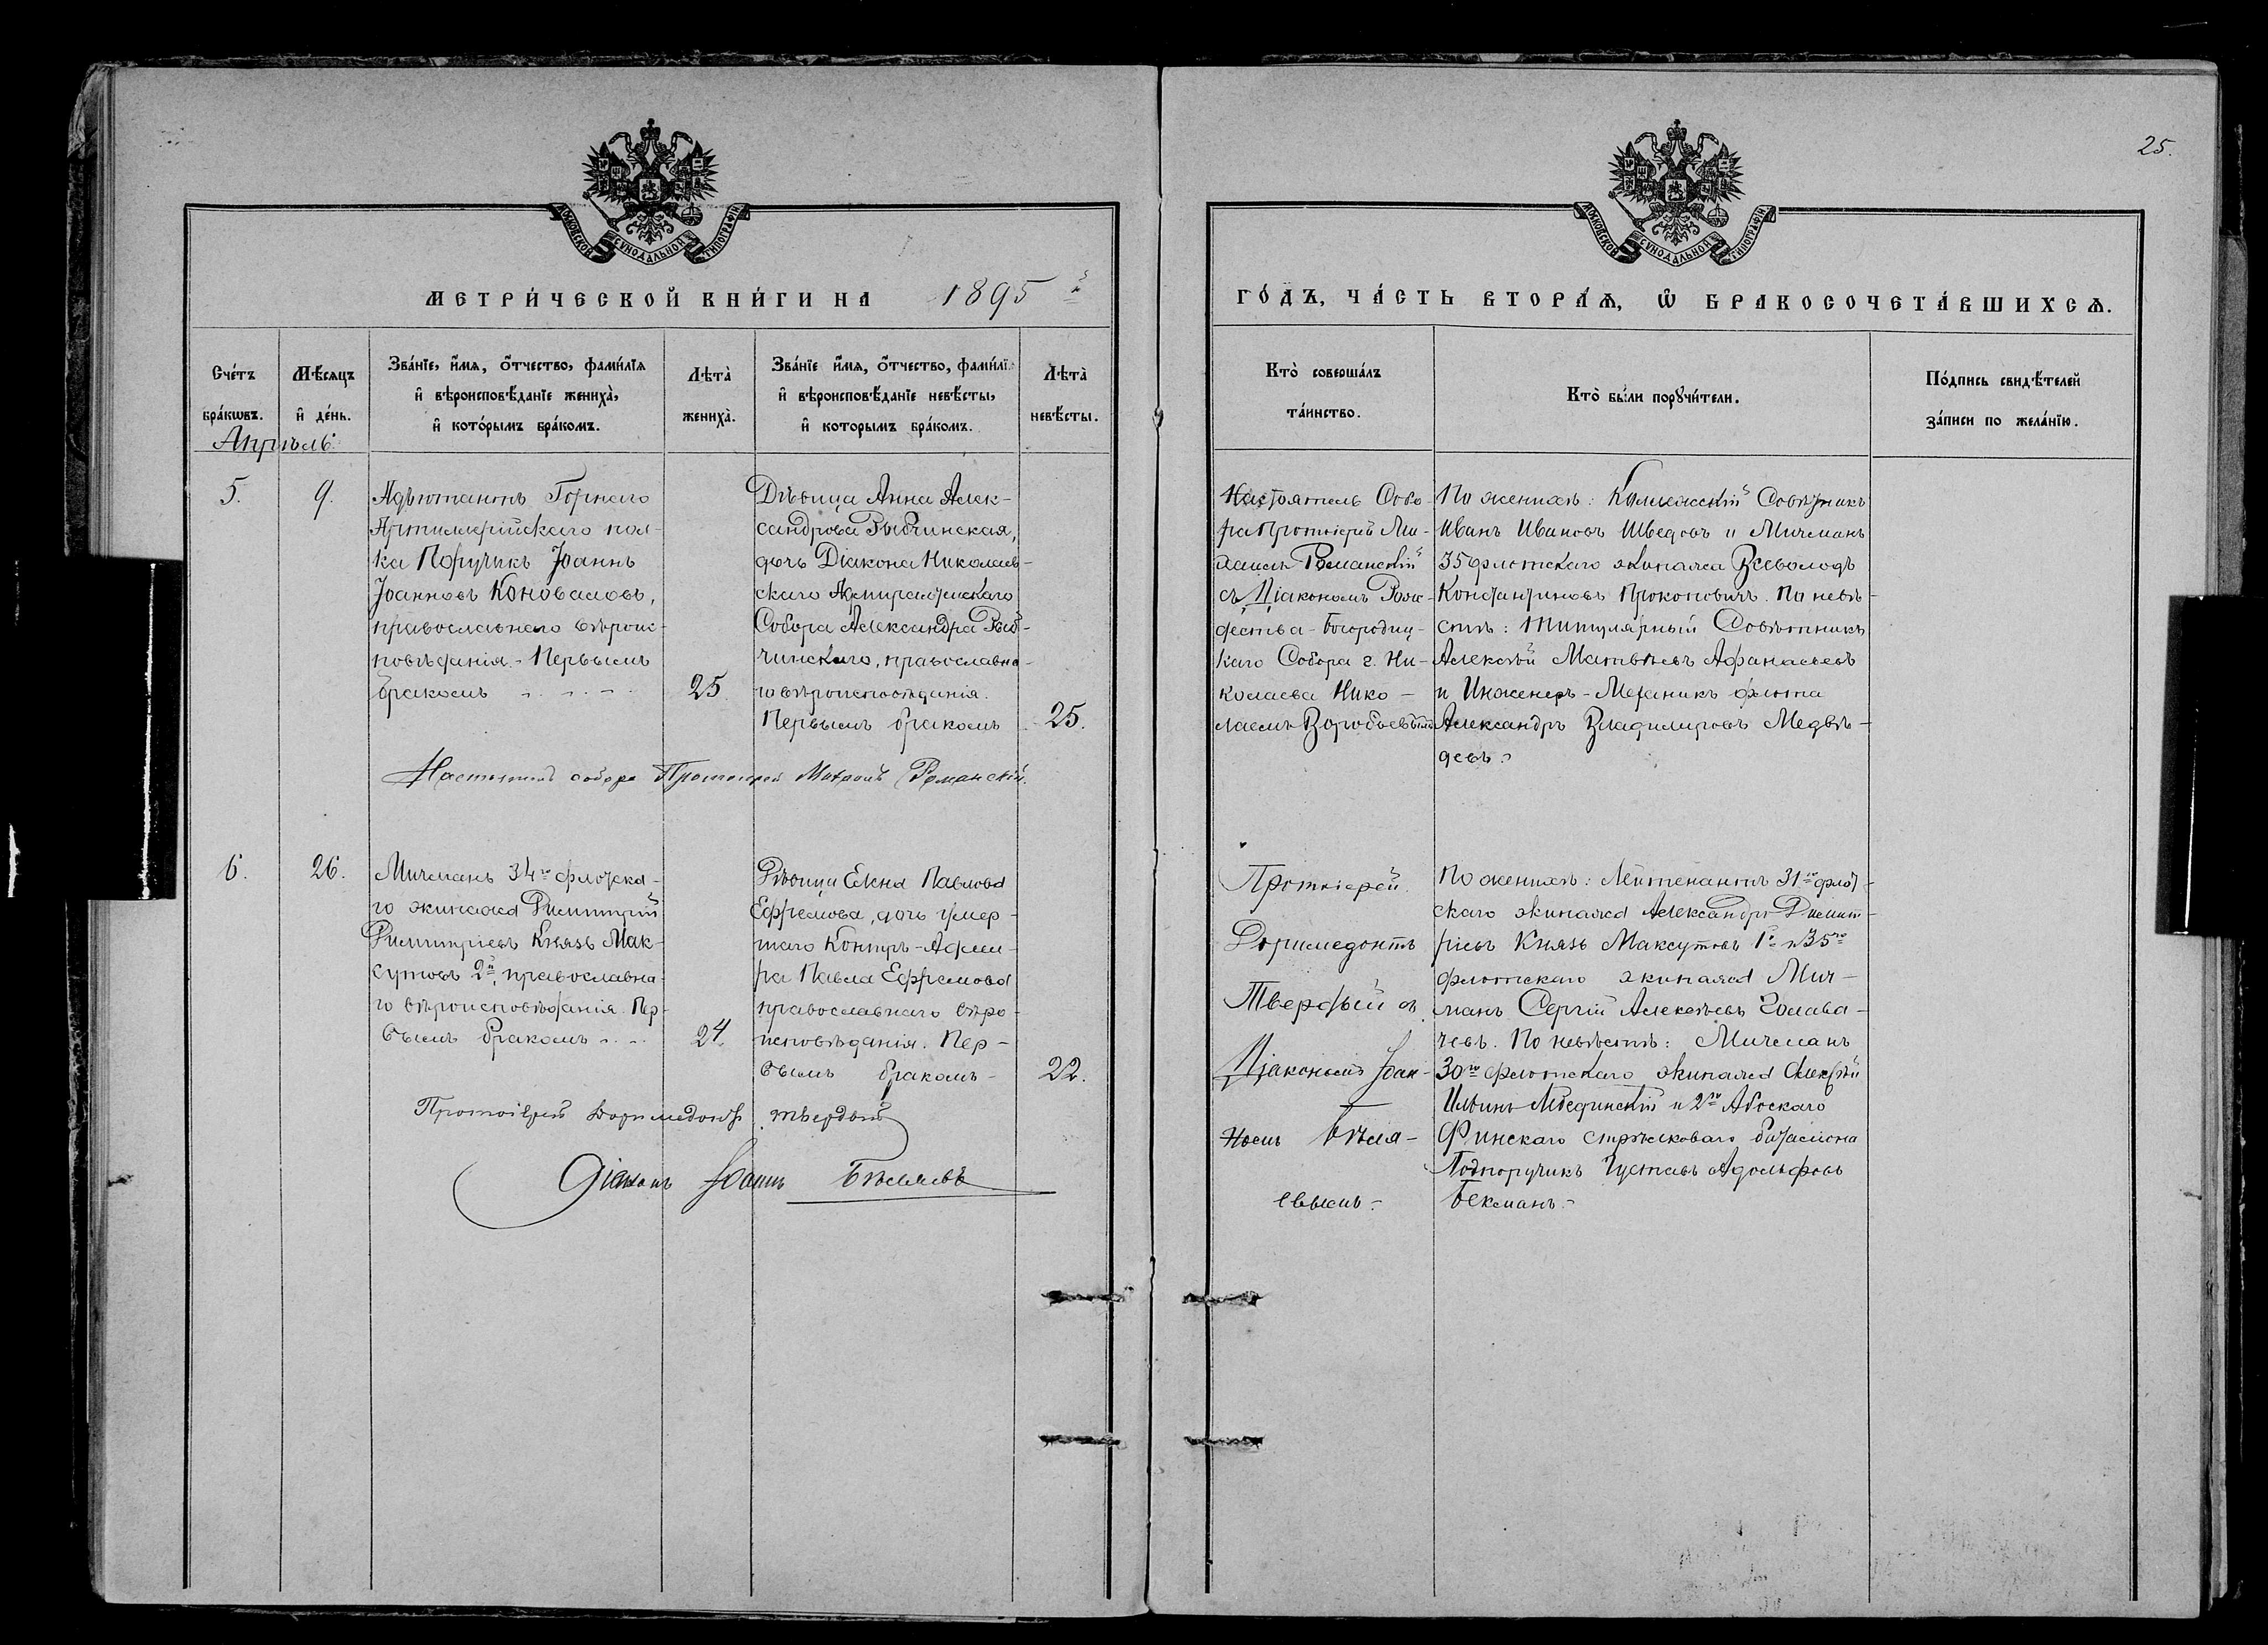 25.
МОСКОВСКОЙ СѴНОДАЛЬНОЙ ТИПОГРАФІИ
МОСКОВСКОЙ СѴНОДАЛЬНОЙ ТИПОГРАФІИ
МЕТРИ́ЧЕСКОЙ КНИ́ГИ НА 1895 й
ГО́ДЪ, ЧА́СТЬ ВТОРА́Ѧ, Ѽ БРАКОСОЧЕТА́ВШИХСѦ.
Сче́тъ
бра́кѡвъ.
Мѣ́сяцъ
и҆ де́нь.
Зва́нїе, и҆́мѧ, о҆́тчество, фами́лїѧ
и҆ вѣроисповѣ́данїе жениха̀,
и҆ кото́рымъ бра́комъ.
Лѣта̀
жениха̀.
Зва́нїе и҆́мѧ, о҆́тчество, фами́лї
и҆ вѣроисповѣ́данїе невѣ́сты,
и҆ которымъ бра́комъ.
Лѣта̀
невѣ́сты.
Кто̀ соверша́лъ
та́инство.
Кто̀ бы́ли порꙋчи́тели.
По́дпись свидѣ́телей
за́писи по жела́нїю.
Апрѣль.
5.
9.
Адъютантъ Горнаго
Артиллерійскаго пол-
ка Поручикъ Іоаннъ
Іоанновъ Коноваловъ,
православнаго вѣроис-
повѣданія. Первымъ
бракомъ
25.
Дѣвица Анна Алек-
сандрова Рыбчинская,
дочь Діакона Николаев-
скаго Адмиралтейскаго
Собора Александра Рыб-
чинскаго, православна-
го вѣроисповѣданія.
Первымъ бракомъ
25.
Настоятель Собо-
ра Протоіерей Ми-
хаилъ Романскій
съ Діакономъ Рож-
дества-Богородиц-
каго Собора г. Ни-
колаева Нико-
лаемъ Воробьевымъ
По женихѣ: Коллежскій Совѣтникъ
Иванъ Ивановъ Шведовъ и Мичманъ
35 флотскаго экипажа Всеволодъ
Константиновъ Прокоповичъ. По невѣ-
стѣ: Титулярный Совѣтникъ
Алексѣй Матвѣевъ Афанасьевъ
и Инженеръ-Механикъ флота
Александръ Владиміровъ Медвѣ-
девъ.
Настоятель собора Протоіерей Михаилъ Романскій.
6.
26.
Мичманъ 34го флотска-
го экипажа Димитрій
Димитріевъ Князь Мак-
сутовъ 2й, православна-
го вѣроисповѣданія. Пер-
вымъ бракомъ
24.
Дѣвица Елена Павлова
Ефремова, дочь умер-
шаго Контръ-Адми-
ра Павла Ефремова
православнаго вѣро-
исповѣданія. Пер-
вымъ бракомъ
22.
Протоіерей
Доримедонтъ
Твердый съ
Діакономъ Іоан-
номъ Бѣля-
евымъ.
По женихѣ: Лейтенантъ 31го флот-
скаго экипажа Александръ Димит-
ріевъ Князь Максутовъ 1й и 35го
флотскаго экипажа Мич-
манъ Сергій Алексѣевъ Голова-
чевъ. По невѣстѣ: Мичманъ
30го флотскаго экипажа Алексѣй
Ильинъ Лебединскій и 2го Абоскаго
Финскаго стрѣлковаго баталіона
Подпоручикъ Густавъ Адольфовъ
Бекманъ.
Протоіерей Доримедонтъ Твердый
Діаконъ Іоаннъ Бѣляевъ